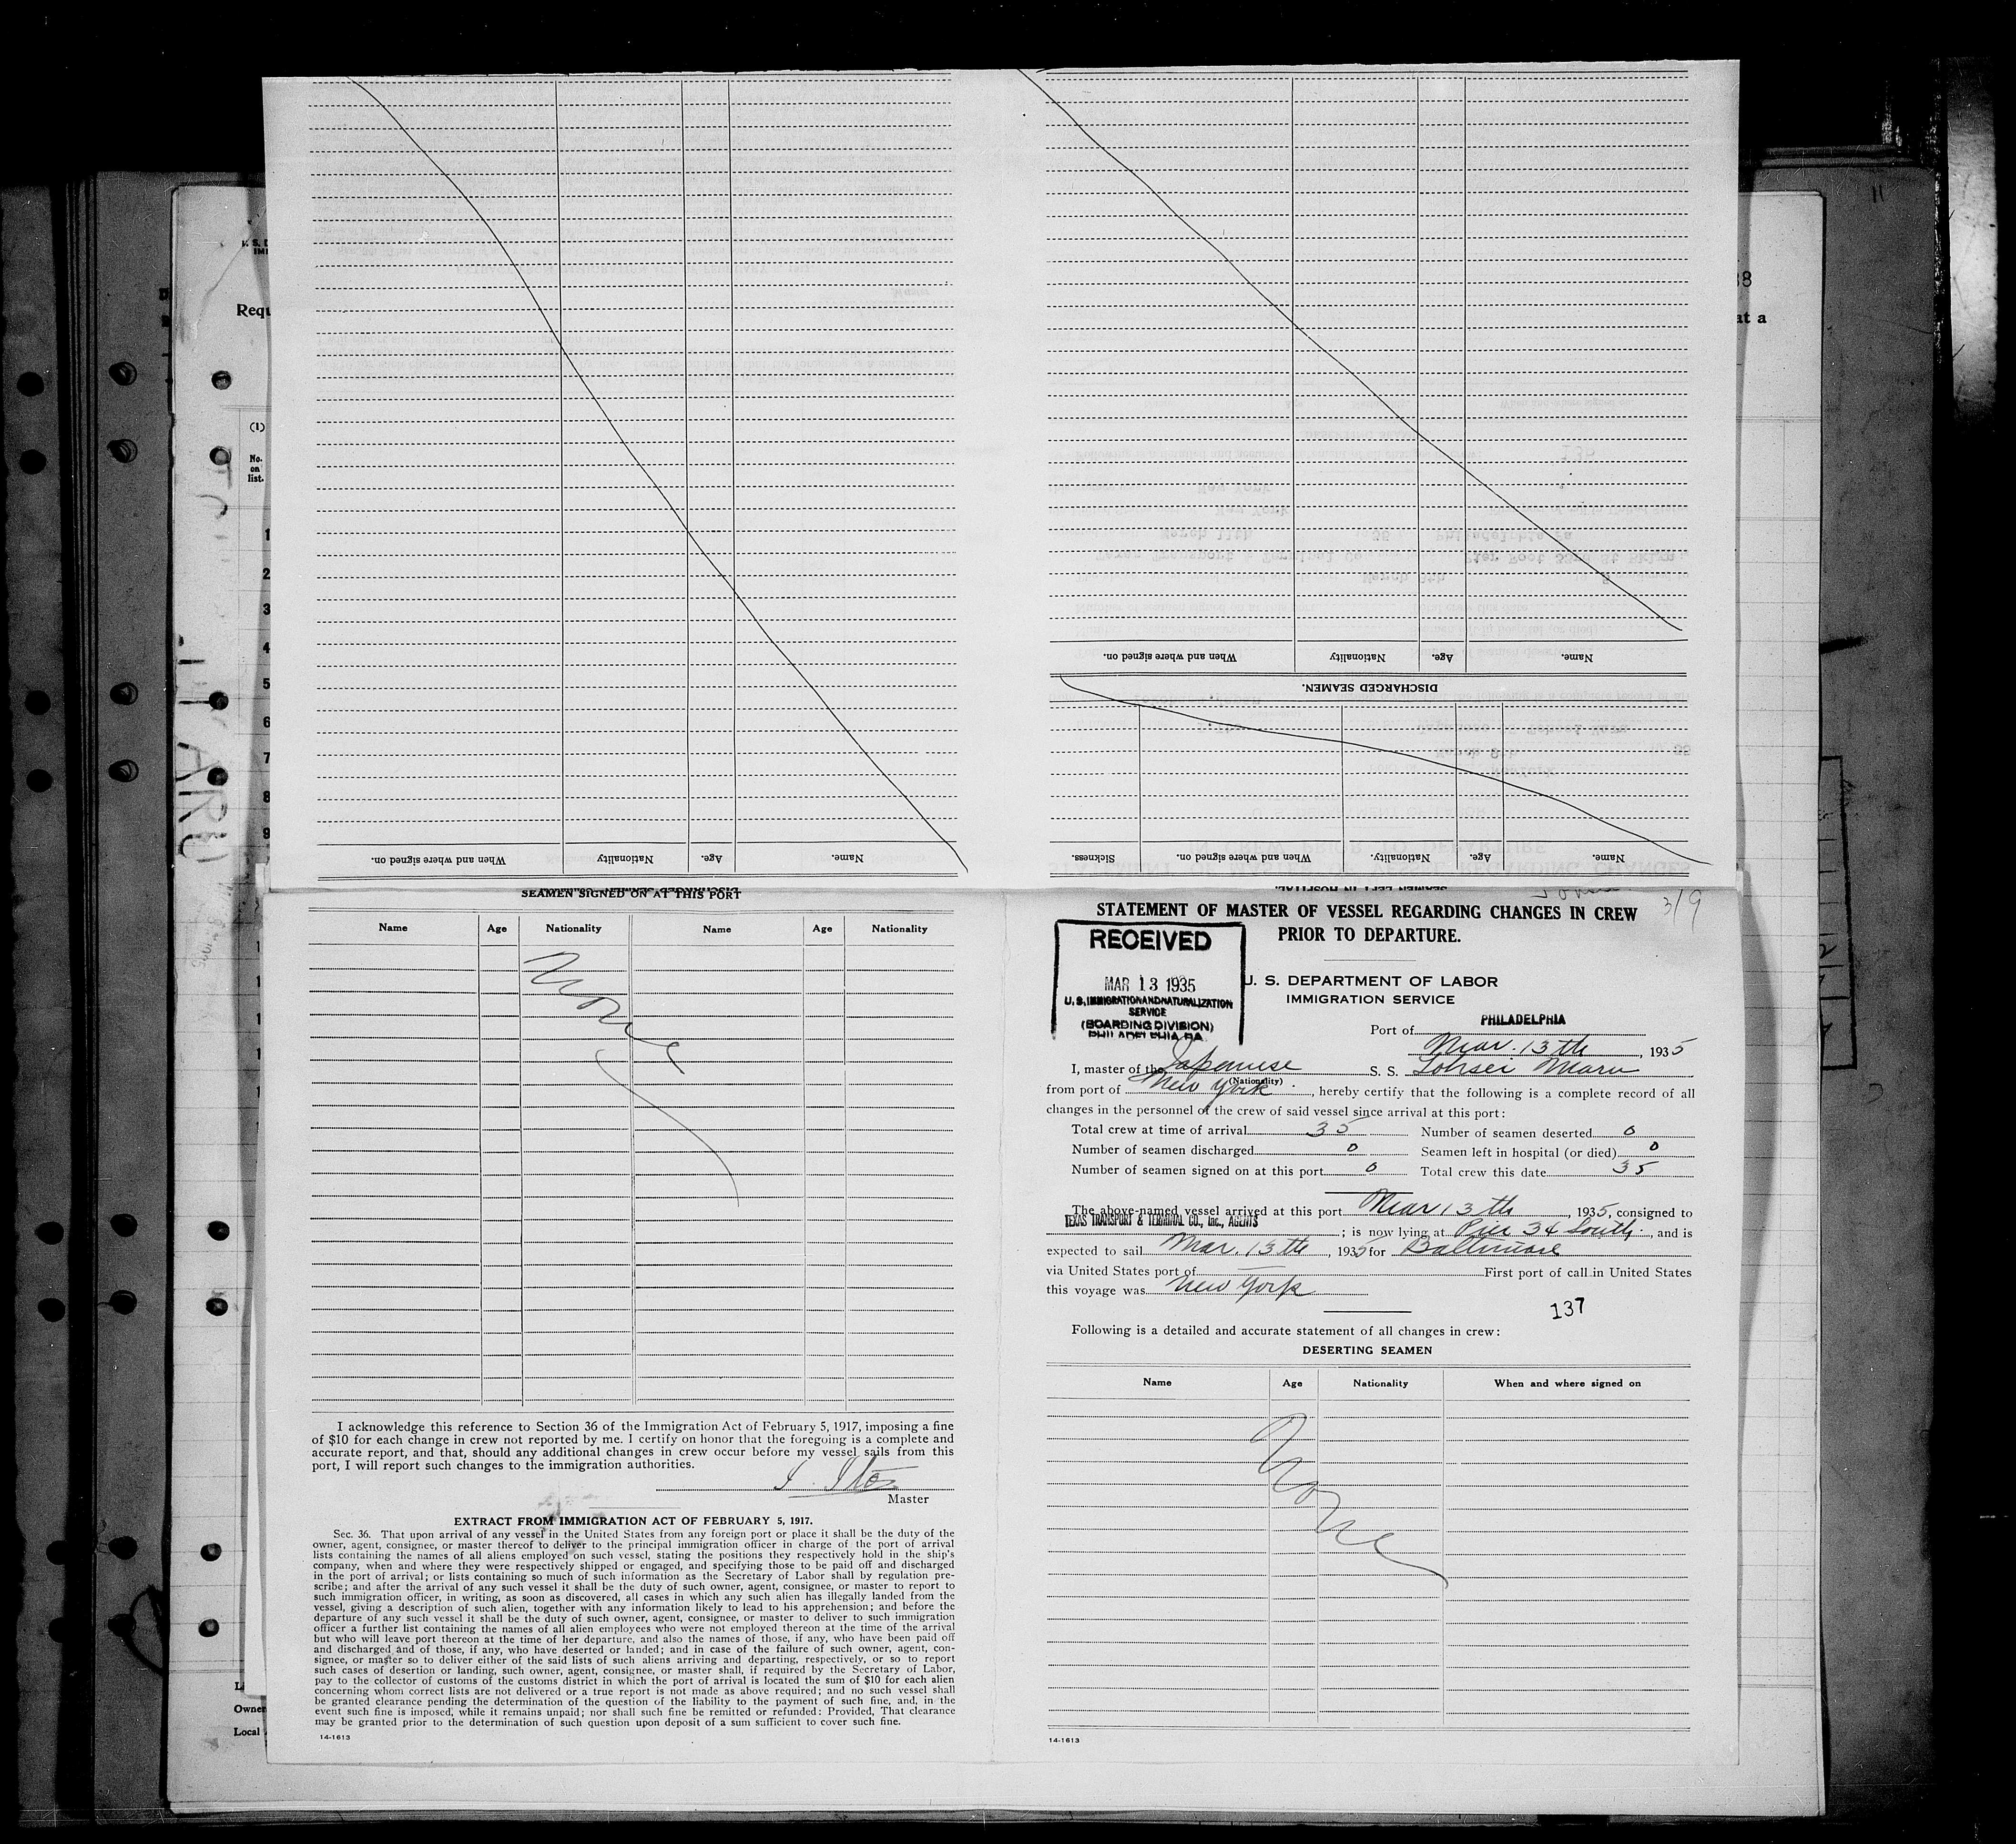 When and where signed on.
Nationality
Age.
Name.
When and where signed on.
Nationality
Age.
Name.
DISCHARGED SEAMEN.
Sickness.
When and where signed on.
Nationality.
Age.
Name.
SEAMEN LEFT IN HOSPITAL.
Requ
(1)
No.
on
list.
1
2
3
4
5
6
7
8
9
Owner
Local
38
at a
11
SEAMEN SIGNED ON AT THIS PORT
Name Age Nationality Name Age Nationality
None
I acknowledge this reference to Section 36 of the Immigration Act of February 5, 1917, imposing a fine
of $10 for each change in crew not reported by me. I certify on honor that the foregoing is a complete and
accurate report, and that, should any additional changes in crew occur before my vessel sails from this
port, I will report such changes to the immigration authorities.
Master
EXTRACT FROM IMMIGRATION ACT OF FEBRUARY 5, 1917.
Sec. 36. That upon arrival of any vessel in the United States from any foreign port or place it shall be the duty of the
owner, agent, consignee, or master thereof to deliver to the principal immigration officer in charge of the port of arrival
lists containing the names of all aliens employed on such vessel, stating the positions they respectively hold in the ship's
company, when and where they were respectively shipped or engaged, and specifying those to be paid off and discharged
in the port of arrival; or lists containing so much of such information as the Secretary of Labor shall by regulation pre-
scribe; and after the arrival of any such vessel it shall be the duty of such owner, agent, consignee, or master to report to
such immigration officer, in writing, as soon as discovered, all cases in which any such alien has illegally landed from the
vessel, giving a description of such alien, together with any information likely to lead to his apprehension; and before the
departure of any such vessel it shall be the duty of such owner, agent, consignee, or master to deliver to such immigration
officer a further list containing the names of all alien employees who were not employed thereon at the time of the arrival
but who will leave port thereon at the time of her departure, and also the names of those, if any, who have been paid off
and discharged and of those, if any, who have deserted or landed; and in case of the failure of such owner, agent, con-
signee, or master so to deliver either of the said lists of such aliens arriving and departing, respectively, or so to report
such cases of desertion or landing, such owner, agent, consignee, or master shall, if required by the Secretary of Labor,
pay to the collector of customs of the customs district in which the port of arrival is located the sum of $10 for each alien
concerning whom correct lists are not delivered or a true report is not made as above required; and no such vessel shall
be granted clearance pending the determination of the question of the liability to the payment of such fine, and, in the
event such fine is imposed, while it remains unpaid; nor shall such fine be remitted or refunded: Provided, That clearance
may be granted prior to the determination of such question upon deposit of a sum sufficient to cover such fine.
14-1613
3/9
STATEMENT OF MASTER OF VESSEL REGARDING CHANGES IN CREW
PRIOR TO DEPARTURE.
RECEIVED
MAR 13 1935
U. S. IMMIGRATION AND NATURALIZATION
SERVICE
(BOARDING DIVISION)
PHILADELPHIA PA.
U. S. DEPARTMENT OF LABOR
IMMIGRATION SERVICE
Port of PHILADELPHIA
Mar. 13th, 1935
I, master of the Japanese S. S. Tohsei Maru
(Nationality)
from port of New York, hereby certify that the following is a complete record of all
changes in the personnel of the crew of said vessel since arrival at this port:
Total crew at time of arrival 35 Number of seamen deserted 0
Number of seamen discharged 0 Seamen left in hospital (or died) 0
Number of seamen signed on at this port 0 Total crew this date 35
The above-named vessel arrived at this port Mar 13th, 1935, consigned to
TEXAS TRANSPORT & TERMINAL CO., Inc., AGENTS; is now lying at Pier 34 South, and is
expected to sail Mar. 13th, 1935 for Baltimore
via United States port of — First port of call in United States
this voyage was New York
137
Following is a detailed and accurate statement of all changes in crew:
DESERTING SEAMEN
Name Age Nationality When and where signed on
None
14-1613